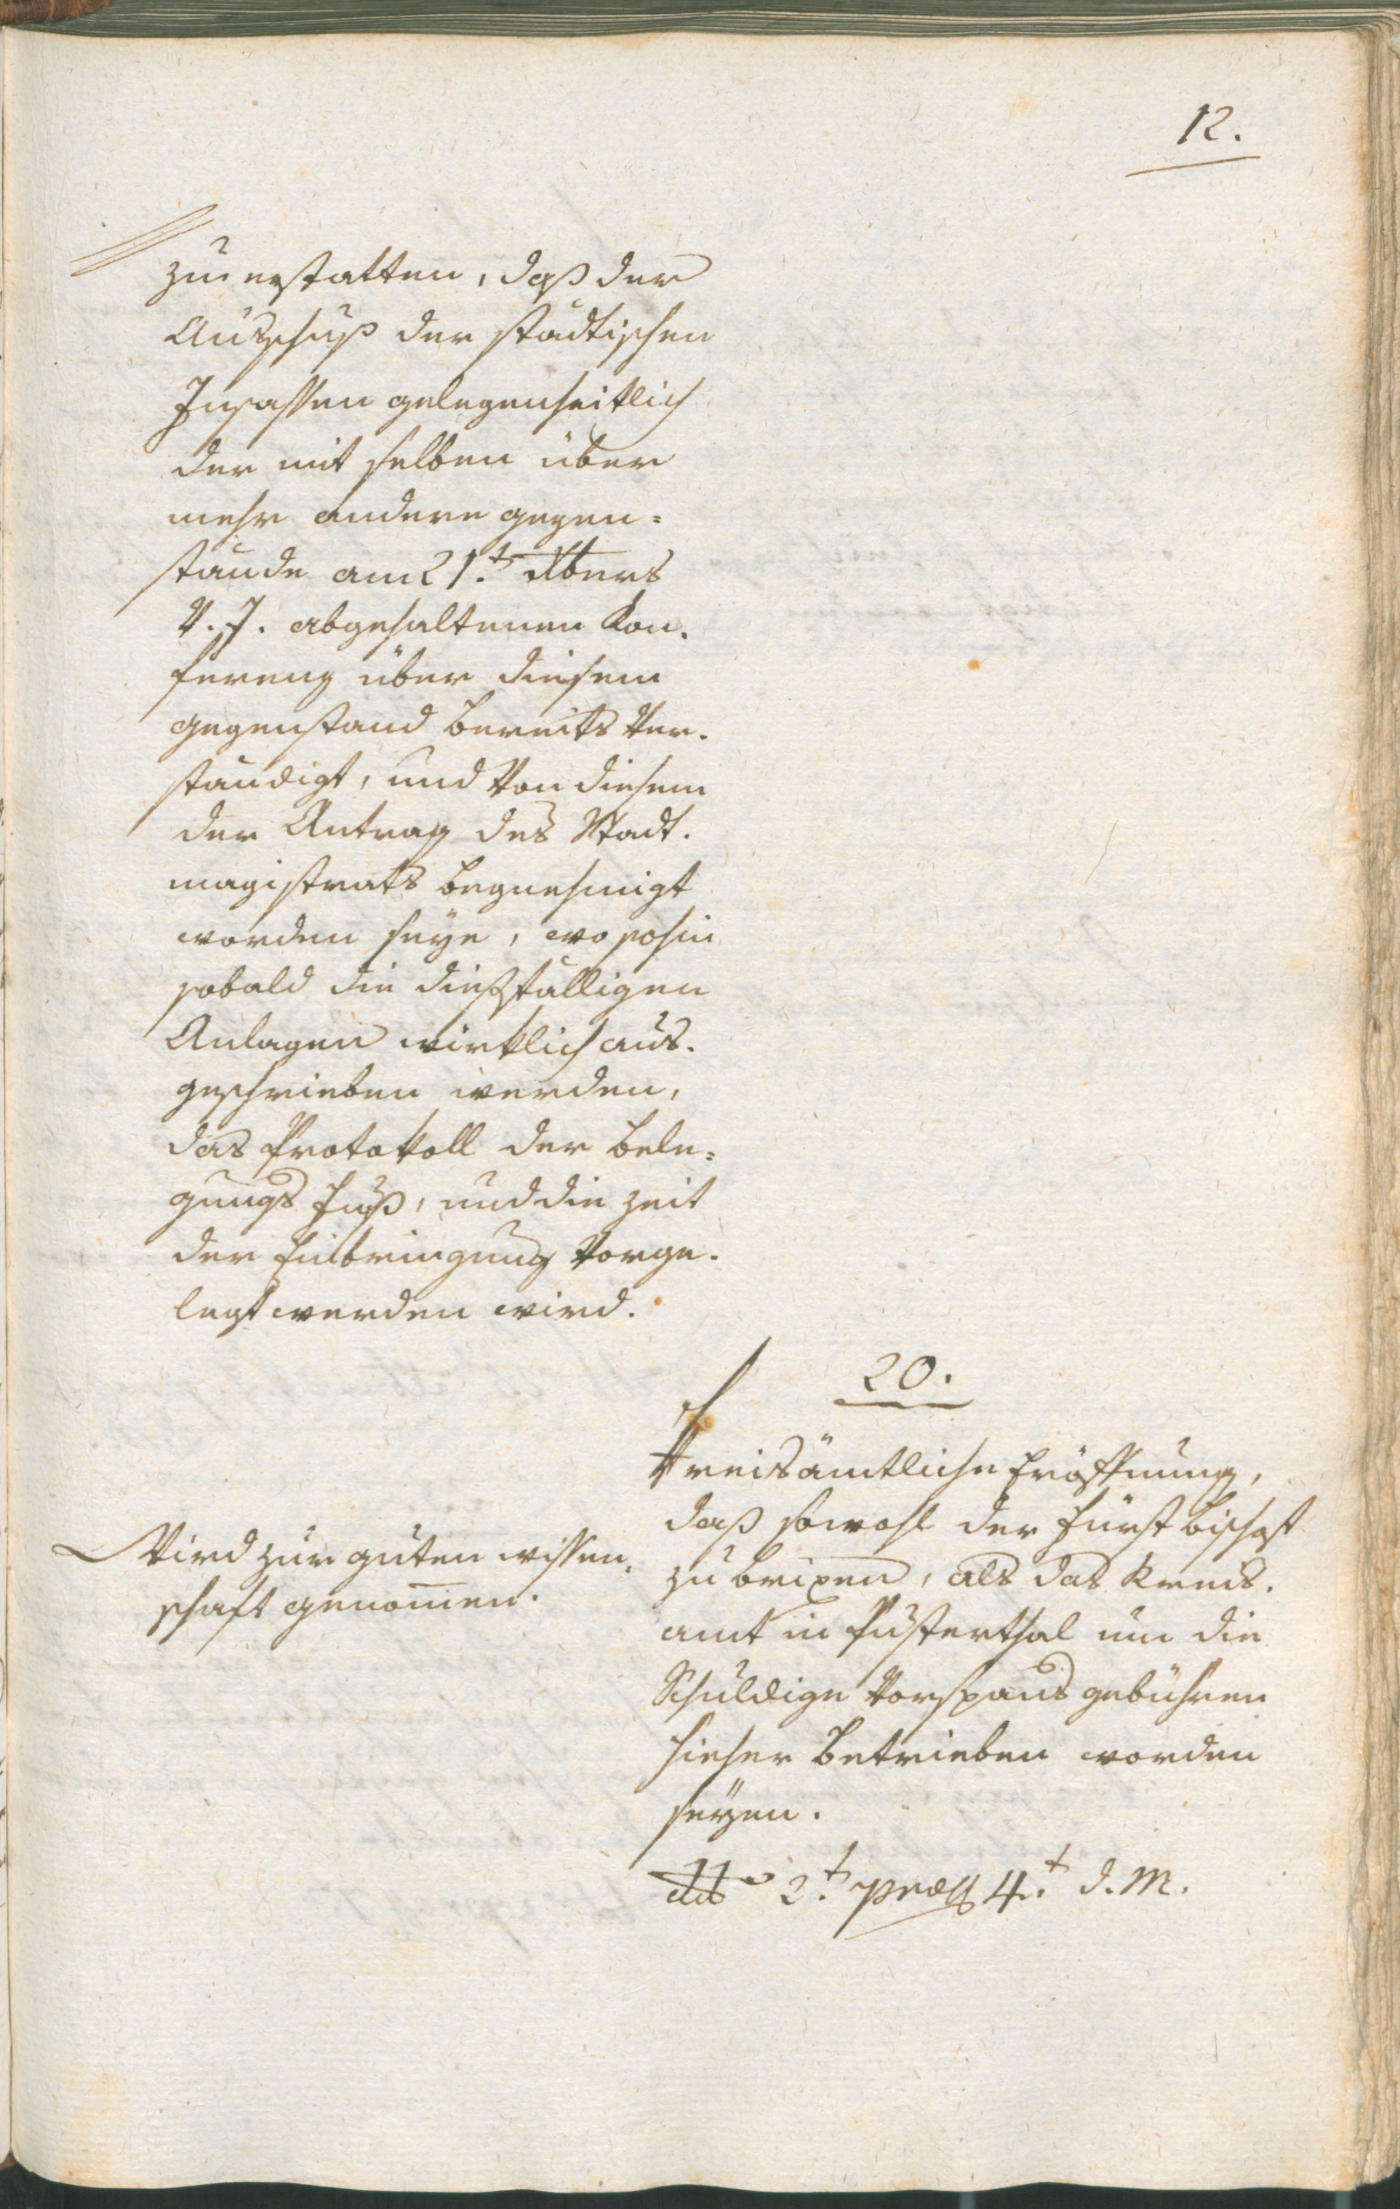 12.
zu erstatten, daß der
Ausschuß der städtischen
Insassen gelegenheitlich
der mit selben über
mehr andere gegen=
stände am 21.t xbers
V. J. abgehaltenen Kon.
ferenz über diesem
gegenstand bereits ver.
ständigt, und von diesem
der Antrag des Stadt.
magistrats begnehmigt
worden seye, wo sohin
sobald die dießfälligen
Anlagen wirklich aus.
geschrieben werden,
das Protokoll der bele=
gungs Fuß, und die zeit
der Einbringung vorge.
legt werden wird.
20.
Kreisämtliche Eröffnung,
daß sowohl der Fürst bischof
zu brixen, als das Kreis.
amt in Pusterthal um die
Schuldige Vorspans gebühren
hieher betrieben worden
seyen.
ddo 2.t præss 4.t d. M.
Wird zur guten wissen.
schaft genomen.